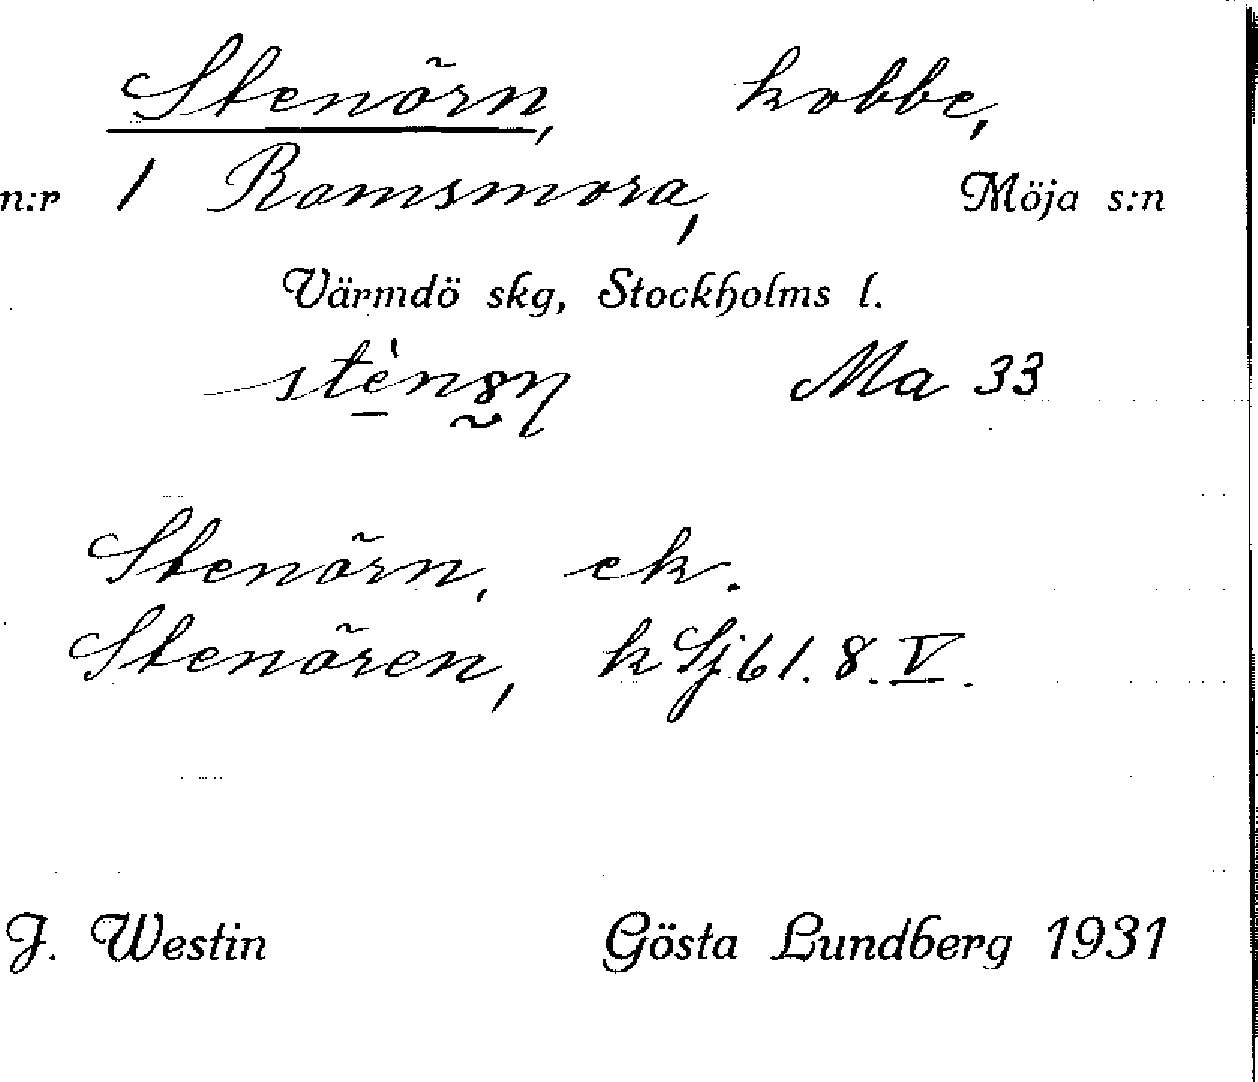 Stenörn, kobbe,
n:r 1 Ramsmora, Möja s:n
Värmdö skg, Stockholms l.
Ma 33
Stenörn, ek.
Stenören, k Sj 61. 8. V.
J. Westin Gösta Lundberg 1931